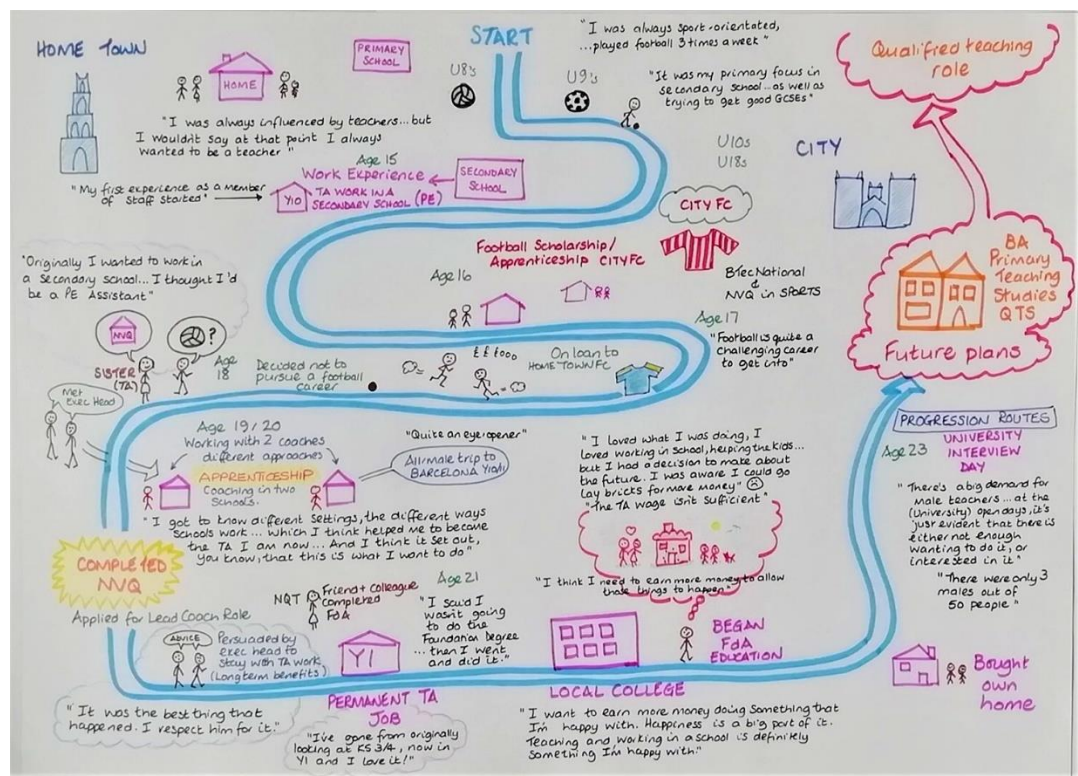 HOME TOWN
PRIMARY
SCHOOL
HOME
START
U8's
U9's
"I was always sport-orientated,
...played football 3 times a week"
"It was my primary focus in
secondary school... as well as
trying to get good GCSEs"
U10s
U18s
CITY
Qualified teaching
role
"I was always influenced by teachers... but
I wouldn't say at that point I always
wanted to be a teacher"
Age 15
Work Experience
SECONDARY
SCHOOL
"My first experience as a member
of staff started"
Y10
TA WORK IN A
SECONDARY SCHOOL (PE)
CITY FC
Football Scholarship/
Apprenticeship CITY FC
Age 16
BTec National
&
NVQ in SPORTS
Age 17
"Football is quite a
challenging career
to get into"
BA
Primary
Teaching
Studies
QTS
Future plans
"Originally I wanted to work in
a secondary school... I thought I'd
be a PE Assistant"
NVQ
?
SISTER
(TA)
Age
18
Decided not to
pursue a football
career
£££000
On loan to
HOME TOWN FC
Met
Exec Head
Age 19/20
Working with 2 coaches
different approaches
APPRENTICESHIP
Coaching in two
Schools.
"Quite an eye-opener"
All male trip to
BARCELONA
"I got to know different settings, the different ways
schools work... which I think helped me to become
the TA I am now... And I think it set out,
you know, that this is what I want to do"
"I loved what I was doing, I
loved working in school, helping the kids...
but I had a decision to make about
the future. I was aware I could go
lay bricks for more money"
"The TA wage isn't sufficient"
"I think I need to earn more money to allow
those things to happen"
PROGRESSION ROUTES
Age 23
UNIVERSITY
INTERVIEW
DAY
"There's a big demand for
male teachers... at the
(University) open days, it's
just evident that there is
either not enough
wanting to do it, or
interested in it"
"There were only 3
males out of
50 people"
COMPLETED
NVQ
Applied for Lead Coach Role
ADVICE
Persuaded by
exec head to
stay with TA work
(Long term benefits)
"It was the best thing that
happened. I respect him for it."
NQT
Friend + colleague
completed
FdA
Age 21
"I said I
wasn't going
to do the
Foundation Degree
...then I went
and did it."
Y1
PERMANENT TA
JOB
"I've gone from originally
looking at KS 3/4, now in
Y1 and I love it!"
LOCAL COLLEGE
BEGAN
FdA
EDUCATION
"I want to earn more money doing something that
I'm happy with. Happiness is a big part of it.
Teaching and working in a school is definitely
something I'm happy with."
Bought
own
home